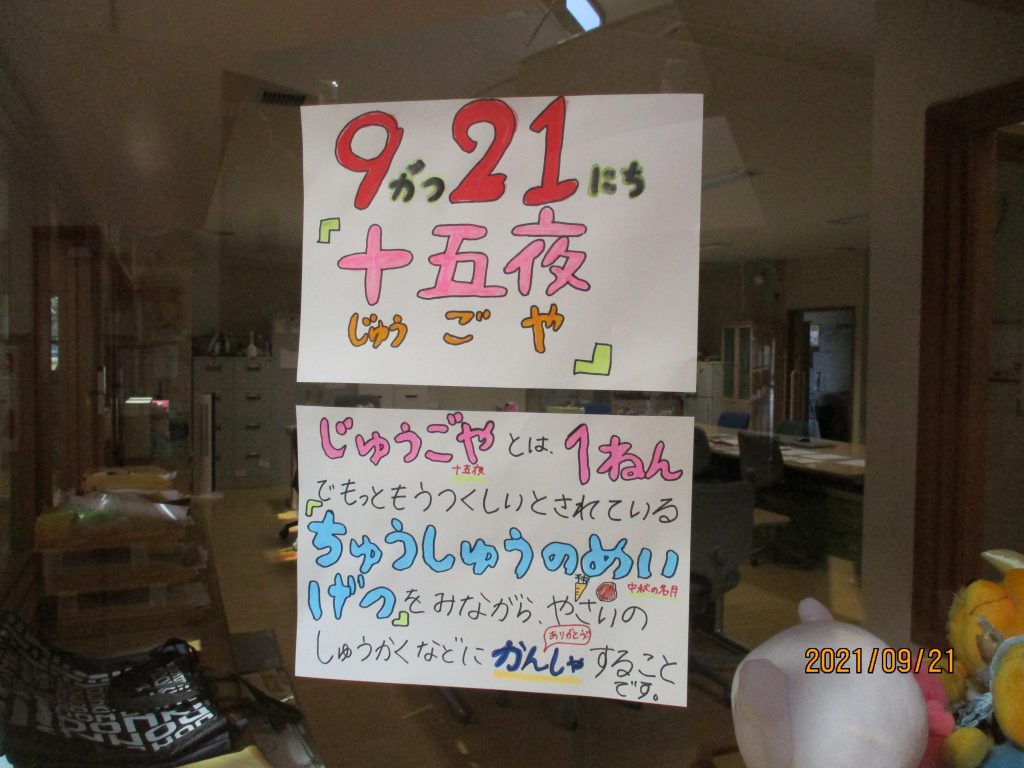 9がつ21にち
『十五夜
じゅうごや』
じゅうごやとは、1ねん
十五夜
でもっともうつくしいとされている
『ちゅうしゅうのめい
中秋の名月
げつ』をみながら、やさいの
ありがとう
しゅうかくなどにかんしゃすること
です。
2021/09/21